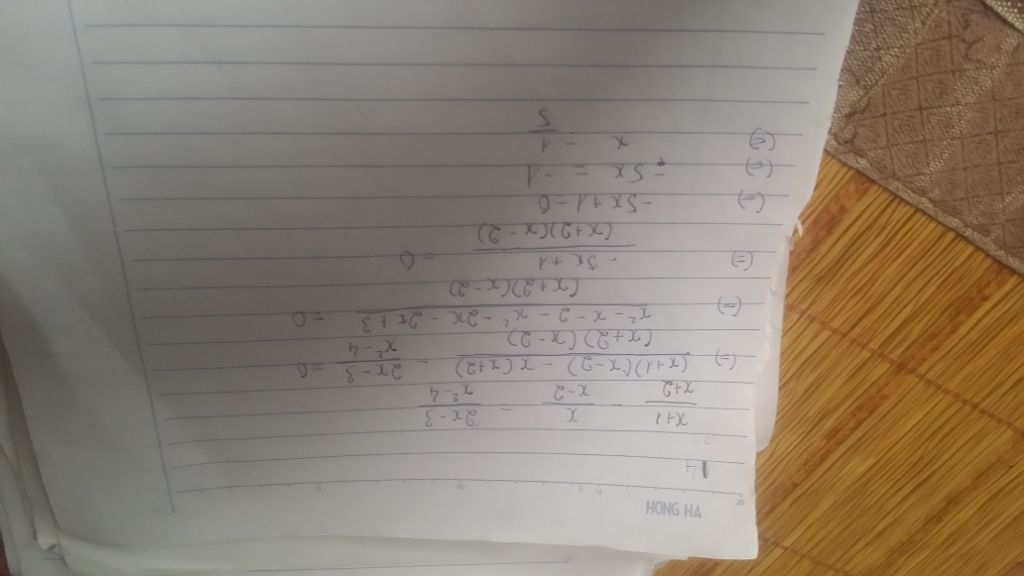 HONG HA
4
x+1/x+2 - x/x-2 = 2x-3/x²-4
(=) (x+1)(x-2) - x(x+2)/(x+2)(x-2) - 2x-3/x²-4 = 0
(=) x²-x-2-x²-2x-2x+3/(x+2)(x-2) = 0
(=) -5x+1/(x+2)(x-2) = 0
(=) -5x+1=0
(=) -5x = -1
(=) x = 1/5